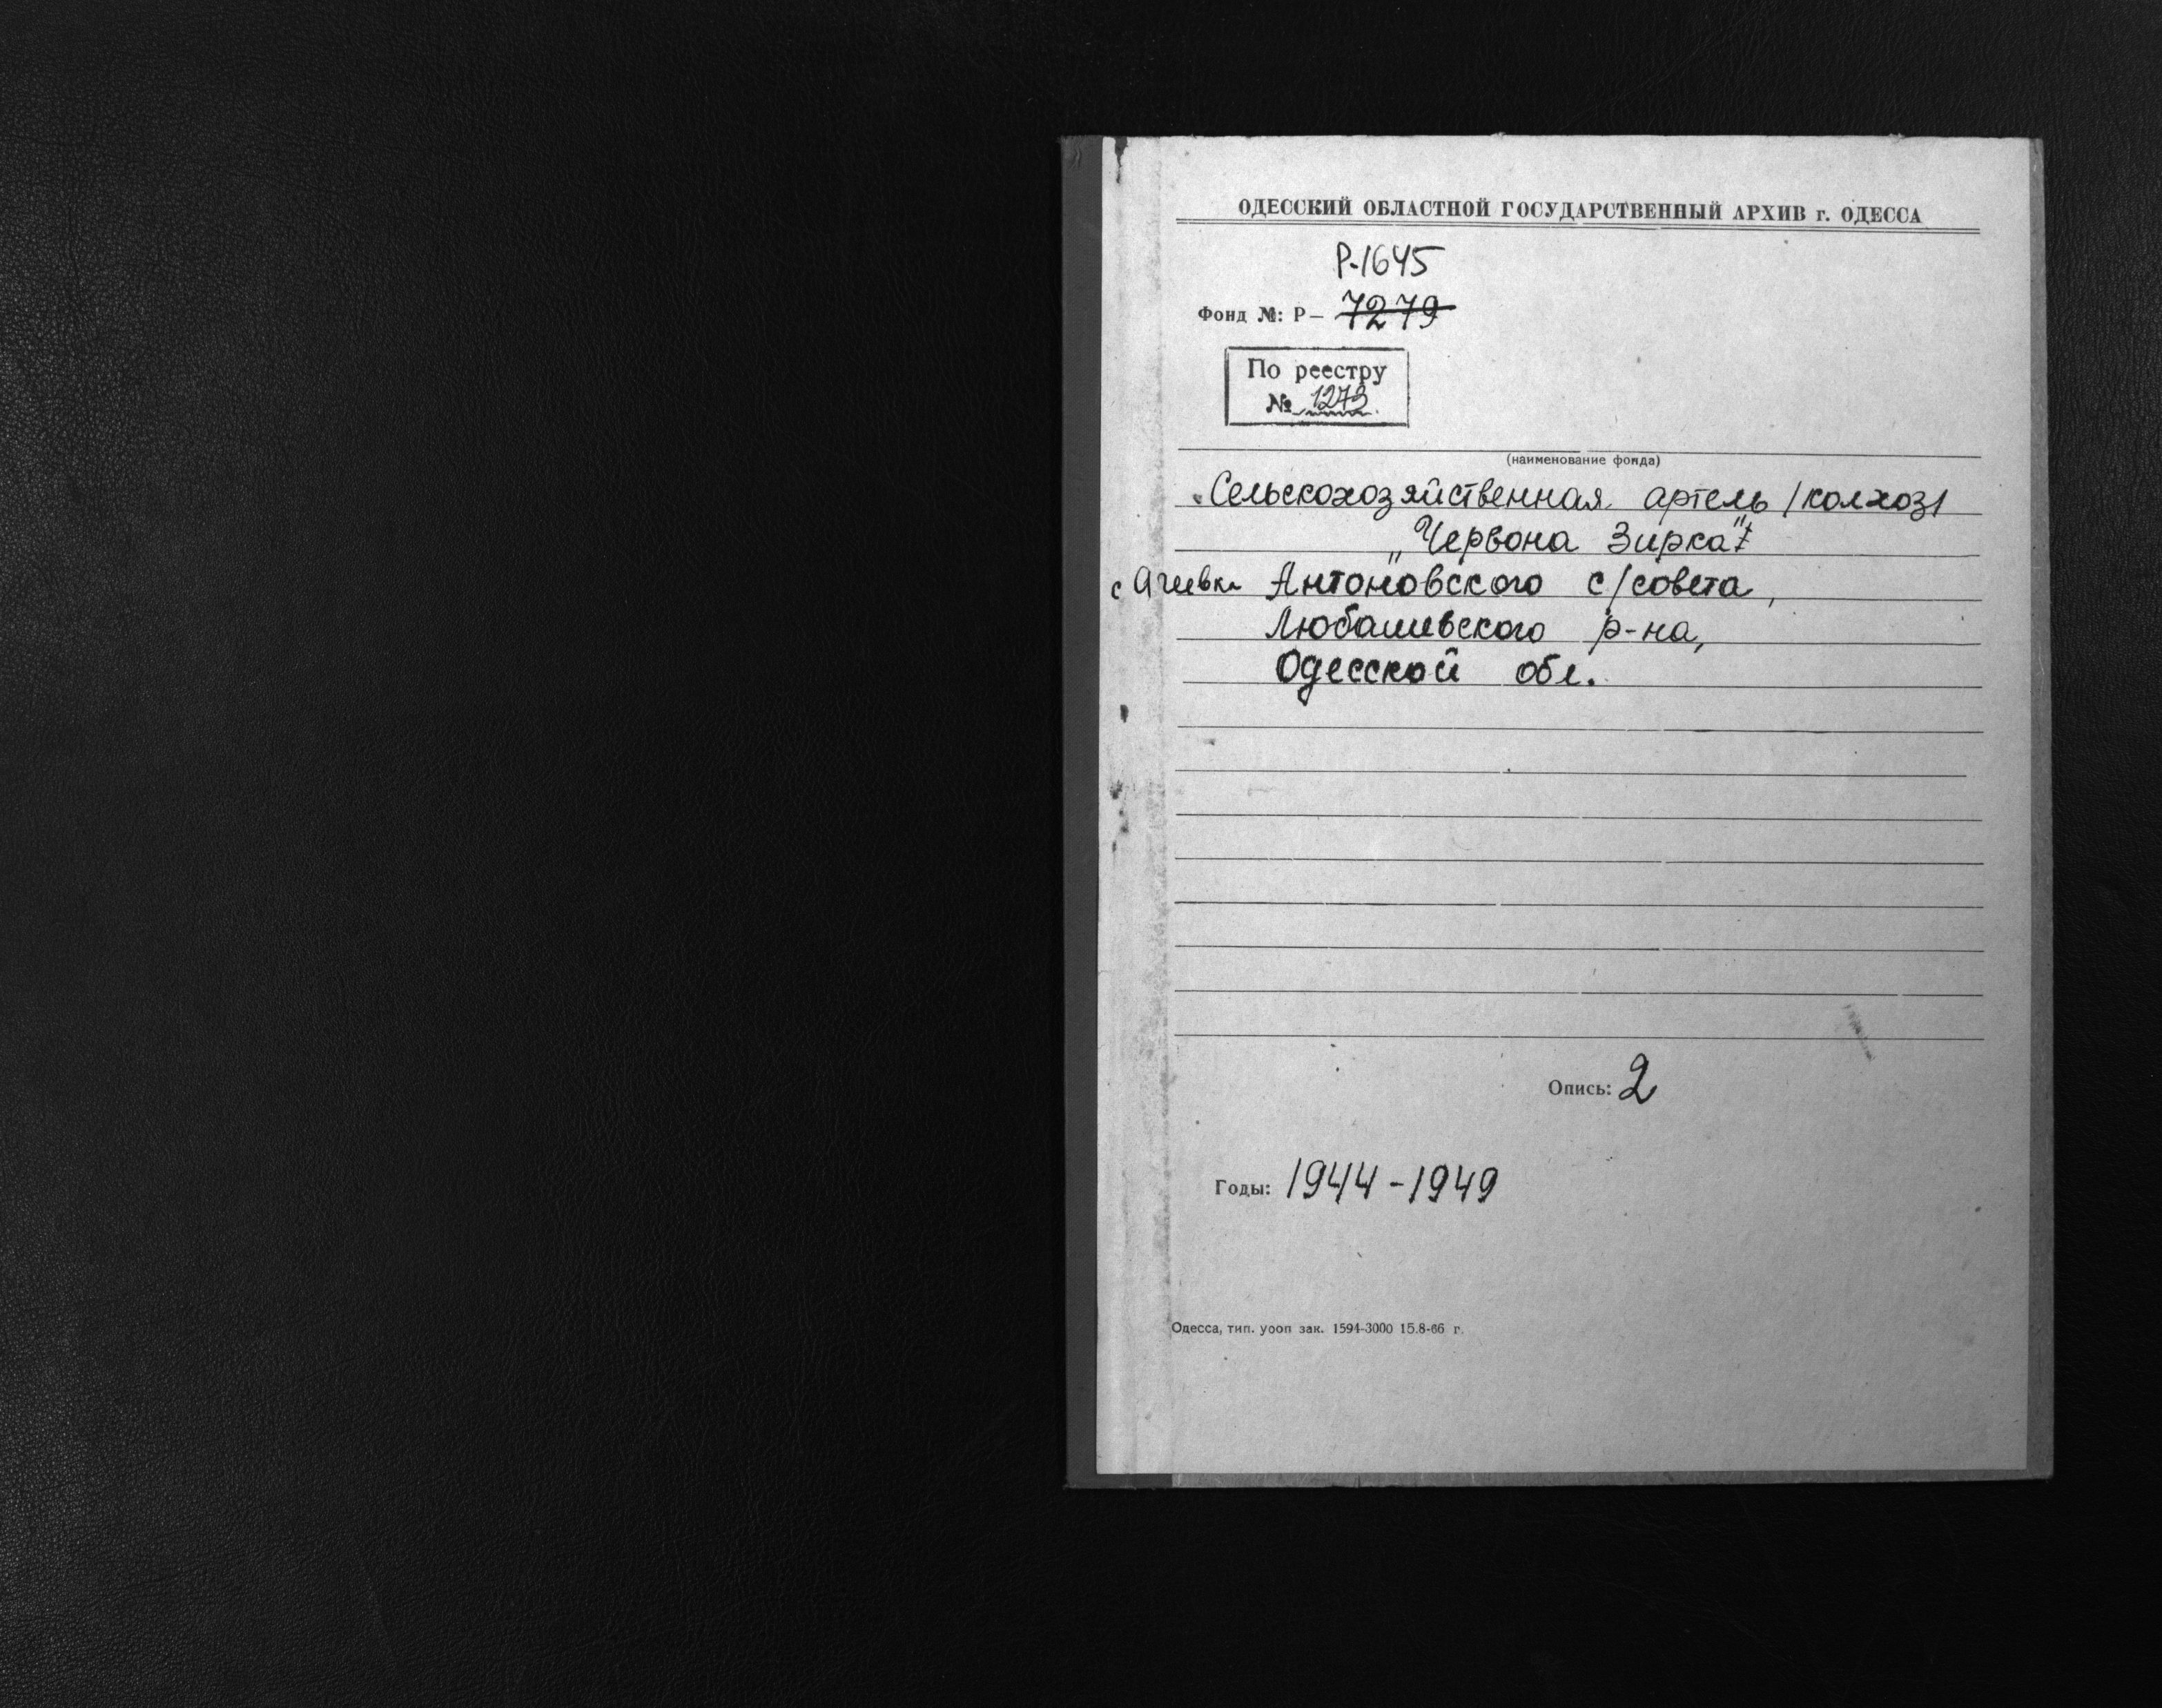 ОДЕССКИЙ ОБЛАСТНОЙ ГОСУДАРСТВЕННЫЙ АРХИВ г. ОДЕССА
Р-1645
Фонд №: Р— 7279
По реестру
№ 1273
(наименование фонда)
Сельскохозяйственная артель /колхоз/
„Червона Зирка"
с Агеевка Антоновского с/совета,
Любашевского р-на,
Одесской обл.
Опись: 2
Годы: 1944-1949
Одесса, тип. уооп зак. 1594-3000 15.8-66 г.